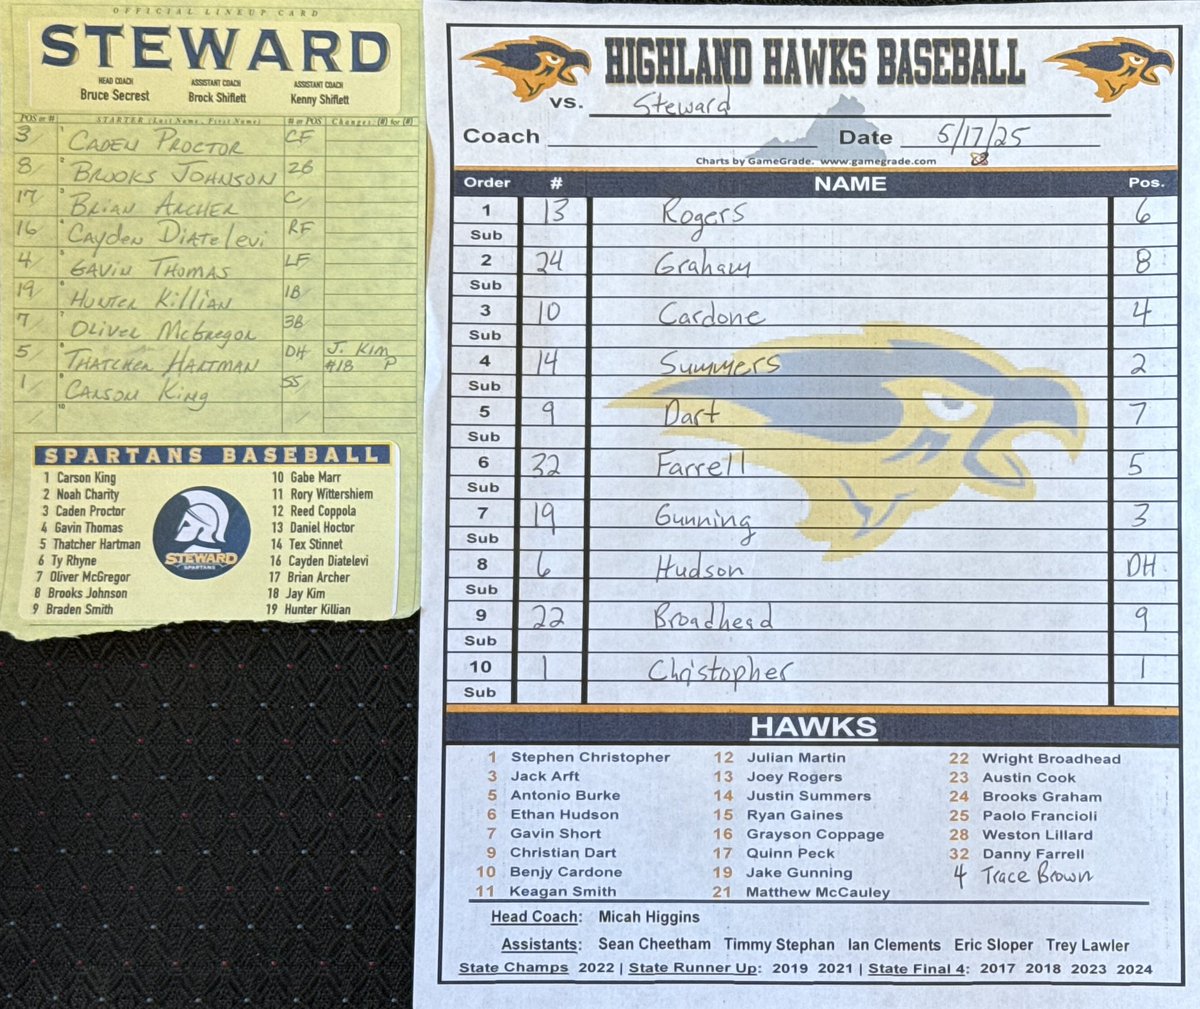 OFFICIAL LINEUP CARD
STEWARD
HEAD COACH ASSISTANT COACH ASSISTANT COACH
Bruce Secrest Brock Shiflett Kenny Shiflett
POS or # STARTER (Last Name, First Name) # or POS Changes: (#) for (#)
3 1 CADEN PROCTOR CF
8 2 BROOKS JOHNSON 2B
17 3 BRIAN ARCHER C
16 4 CAYDEN DIATELEVI RF
4 5 GAVIN THOMAS LF
19 6 HUNTER KILLIAN 1B
7 7 OLIVER MCGREGOR 3B
5 8 THATCHER HARTMAN DH J. KIM #18 P
1 9 CARSON KING SS
10
SPARTANS BASEBALL
1 Carson King
2 Noah Charity
3 Caden Proctor
4 Gavin Thomas
5 Thatcher Hartman
6 Ty Rhyne
7 Oliver McGregor
8 Brooks Johnson
9 Braden Smith
STEWARD
SPARTANS
10 Gabe Marr
11 Rory Wittershiem
12 Reed Coppola
13 Daniel Hoctor
14 Tex Stinnet
16 Cayden Diatelevi
17 Brian Archer
18 Jay Kim
19 Hunter Killian
HIGHLAND HAWKS BASEBALL
vs. Steward
Coach Date 5/17/25
Charts by GameGrade. www.gamegrade.com
Order # NAME Pos.
1 13 Rogers 6
Sub
2 24 Graham 8
Sub
3 10 Cardone 4
Sub
4 14 Summers 2
Sub
5 9 Dart 7
Sub
6 32 Farrell 5
Sub
7 19 Gunning 3
Sub
8 6 Hudson DH
Sub
9 22 Broadhead 9
Sub
10 1 Christopher 1
Sub
HAWKS
1 Stephen Christopher
3 Jack Arft
5 Antonio Burke
6 Ethan Hudson
7 Gavin Short
9 Christian Dart
10 Benjy Cardone
11 Keagan Smith
12 Julian Martin
13 Joey Rogers
14 Justin Summers
15 Ryan Gaines
16 Grayson Coppage
17 Quinn Peck
19 Jake Gunning
21 Matthew McCauley
22 Wright Broadhead
23 Austin Cook
24 Brooks Graham
25 Paolo Francioli
28 Weston Lillard
32 Danny Farrell
4 Trace Brown
Head Coach: Micah Higgins
Assistants: Sean Cheetham Timmy Stephan Ian Clements Eric Sloper Trey Lawler
State Champs 2022 | State Runner Up: 2019 2021 | State Final 4: 2017 2018 2023 2024